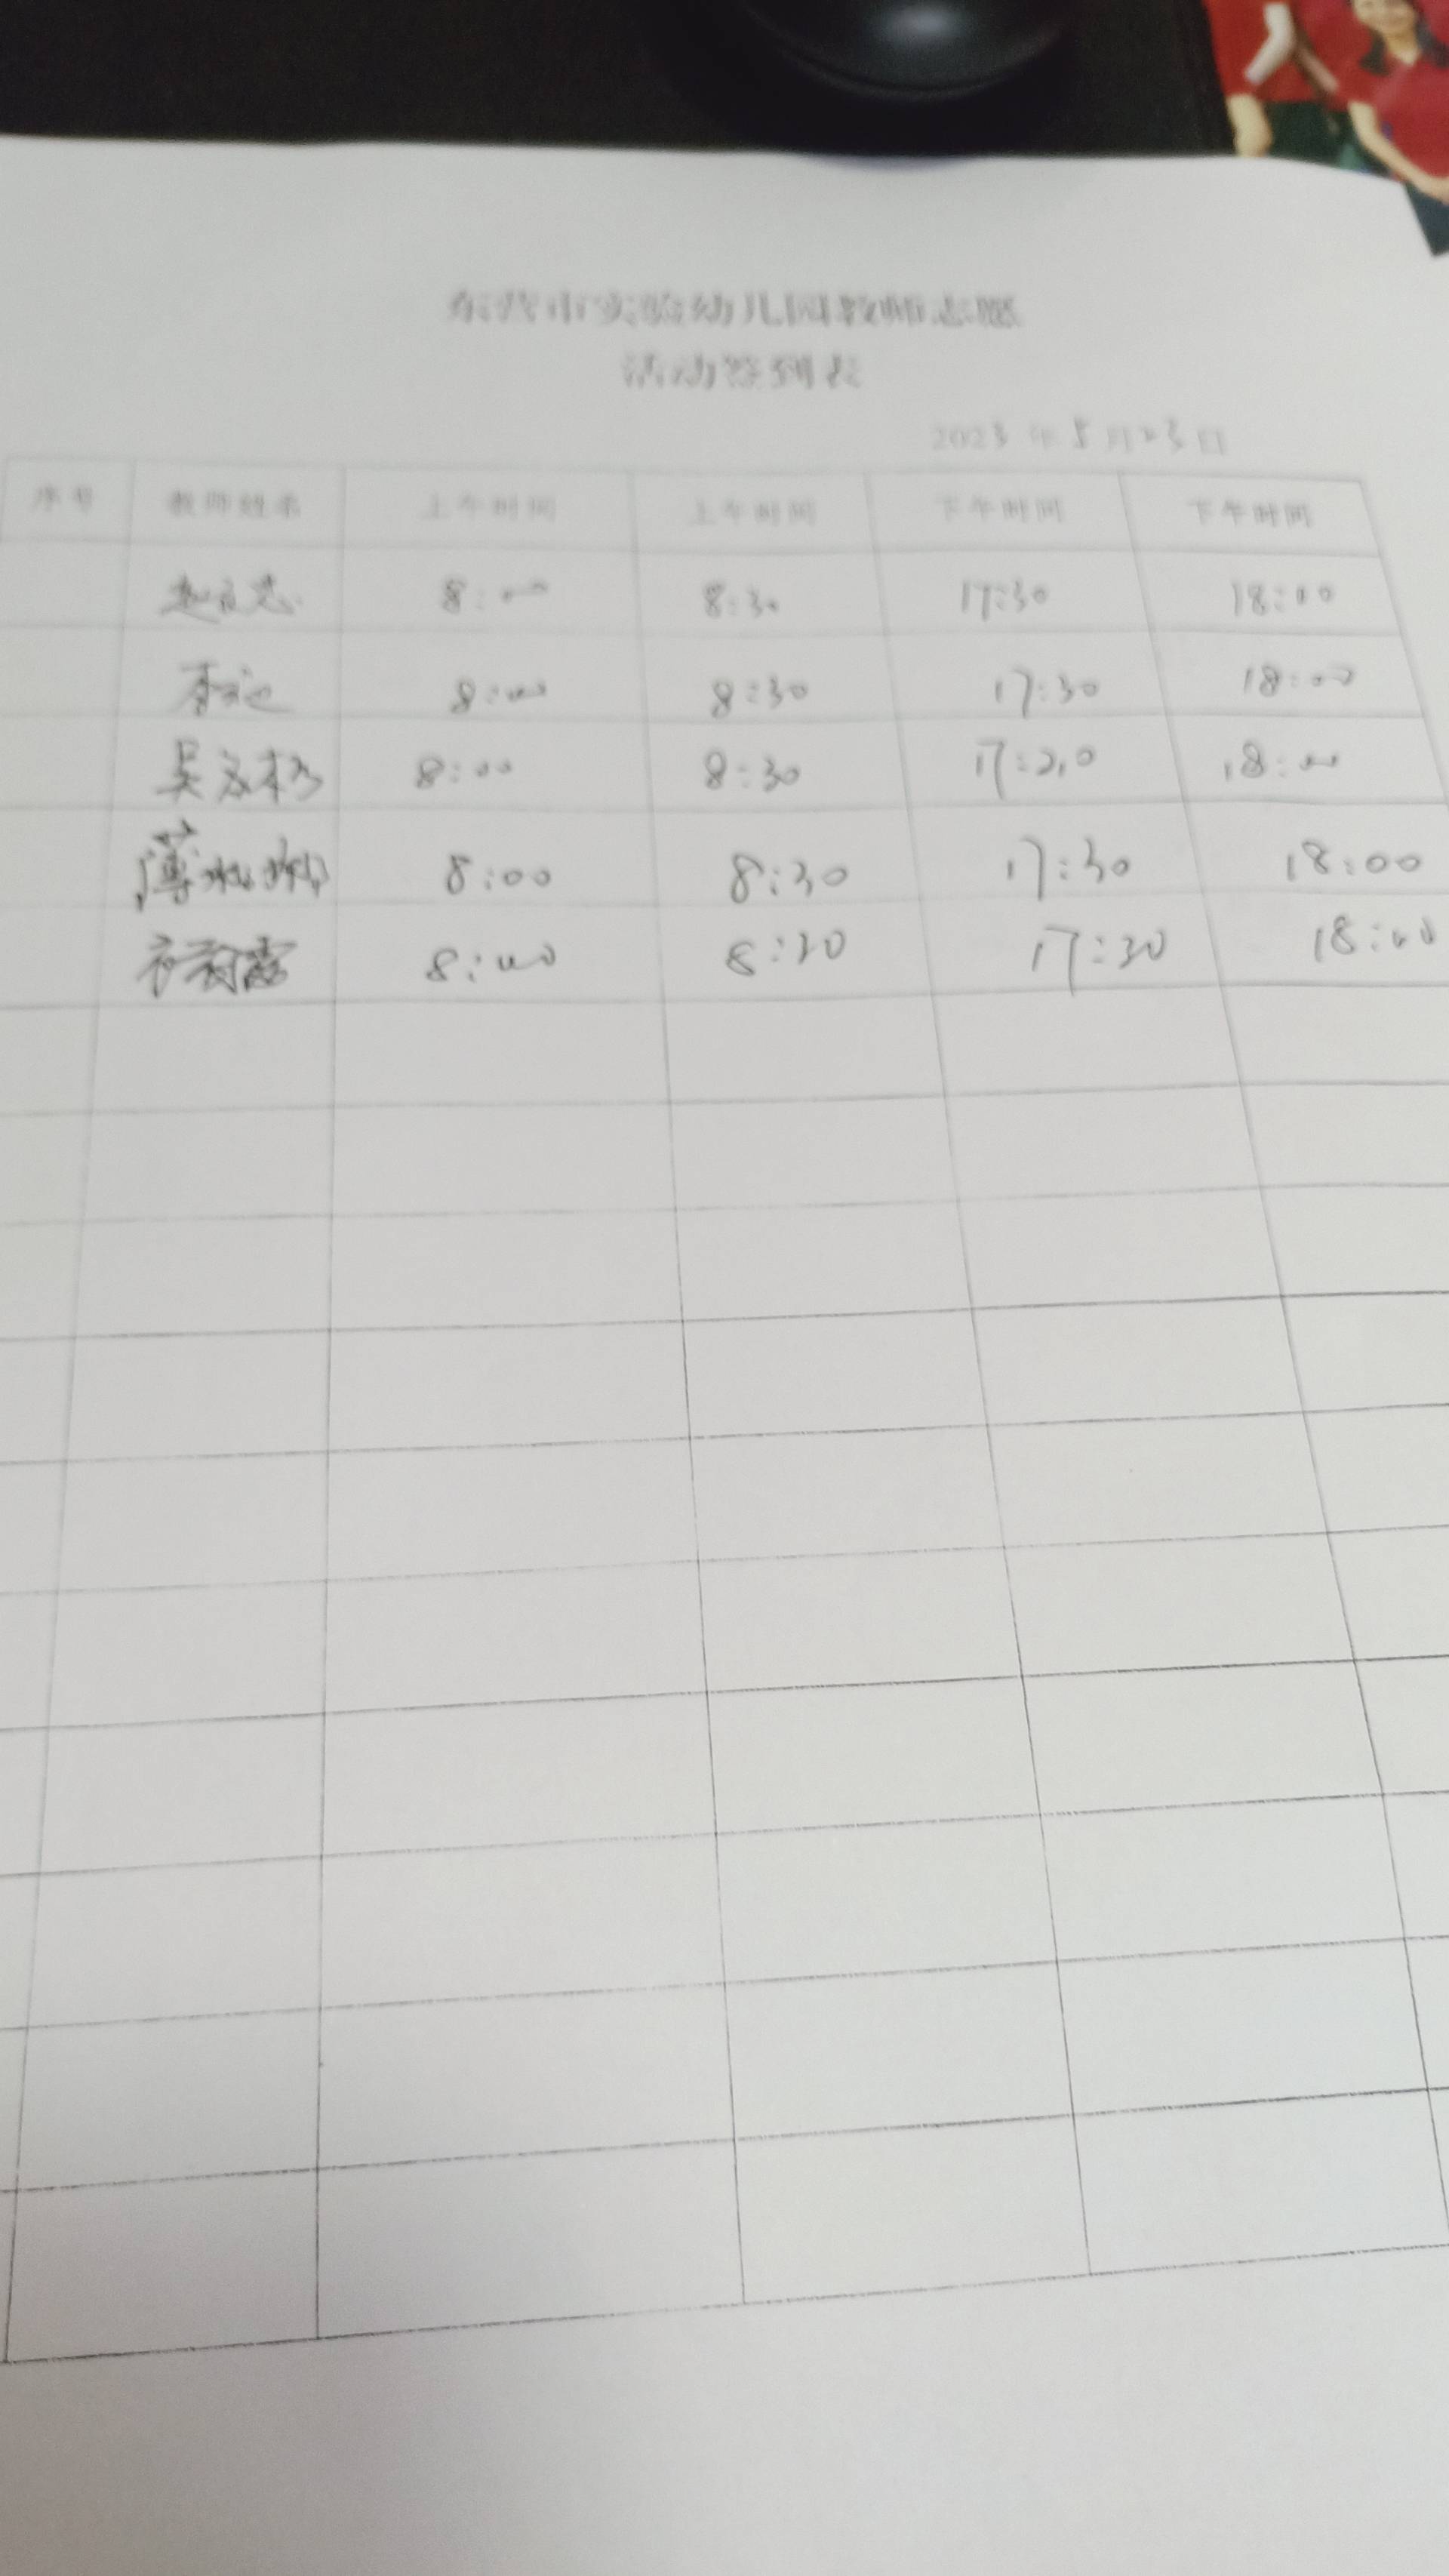 东营市实验幼儿园教师志愿
活动签到表
2023 年 5 月 23 日
序号 教师姓名 上午时间 上午时间 下午时间 下午时间
8:00 8:30 17:30 18:00
8:00 8:30 17:30 18:00
吴 8:00 8:30 17:30 18:00
薄 8:00 8:30 17:30 18:00
8:00 8:30 17:30 18:00